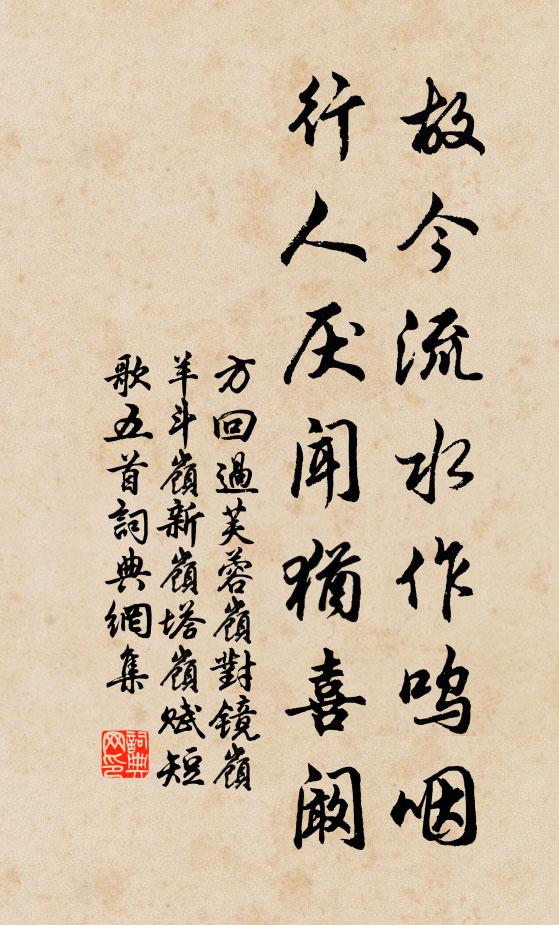 故今流水作呜咽
行人厌闻犹喜阚
方回過芙蓉嶺對鏡嶺
羊斗嶺新嶺塔嶺赋短
歌五首詞典網集
詞典网印